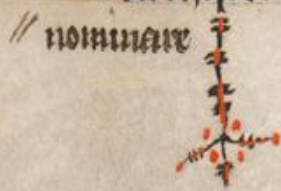 // nominare